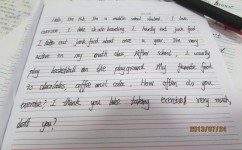 I am a middle school student. I love
exercise. I like skate boarding. I usually eat junk food.
I eat junk food about once a year. I'm very
active in my small class. After school, I usually
play basketball on the playground. My favorite food
is chocolates, coffee and cola. How often do you
exercise? I think you like taking exercise very much,
don't you?
2013/07/24